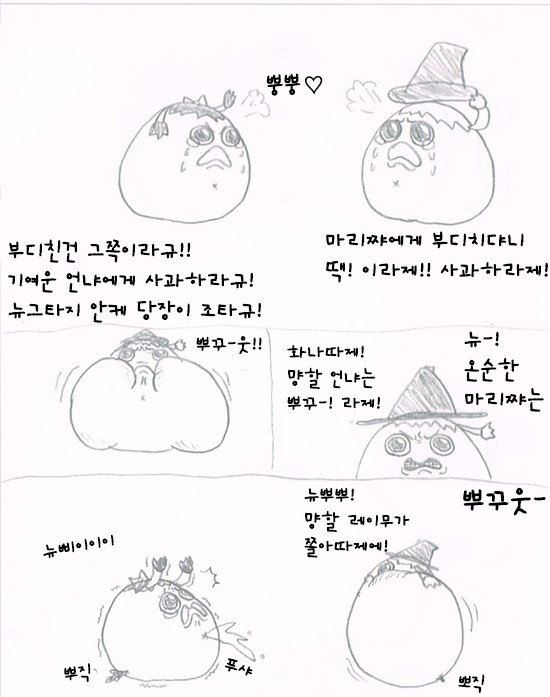 뿡뿡♡
부디친건 그쪽이라규!!
기여운 언냐에게 사과하라규!
뉴그타지 안케 당장이 조타규!
마리쨔에게 부디치댜니
땍! 이라제!! 사과하라제!
뿌꾸-웃!!
화나따제!
먕할 언냐는
뿌꾸-! 라제!
뉴-!
온순한
마리쨔는
뉴삐이이이
뿌직
푸샤
뉴뿌뿌!
먕할 레이무가
쫄아따제에!
뿌꾸웃-
뽀직